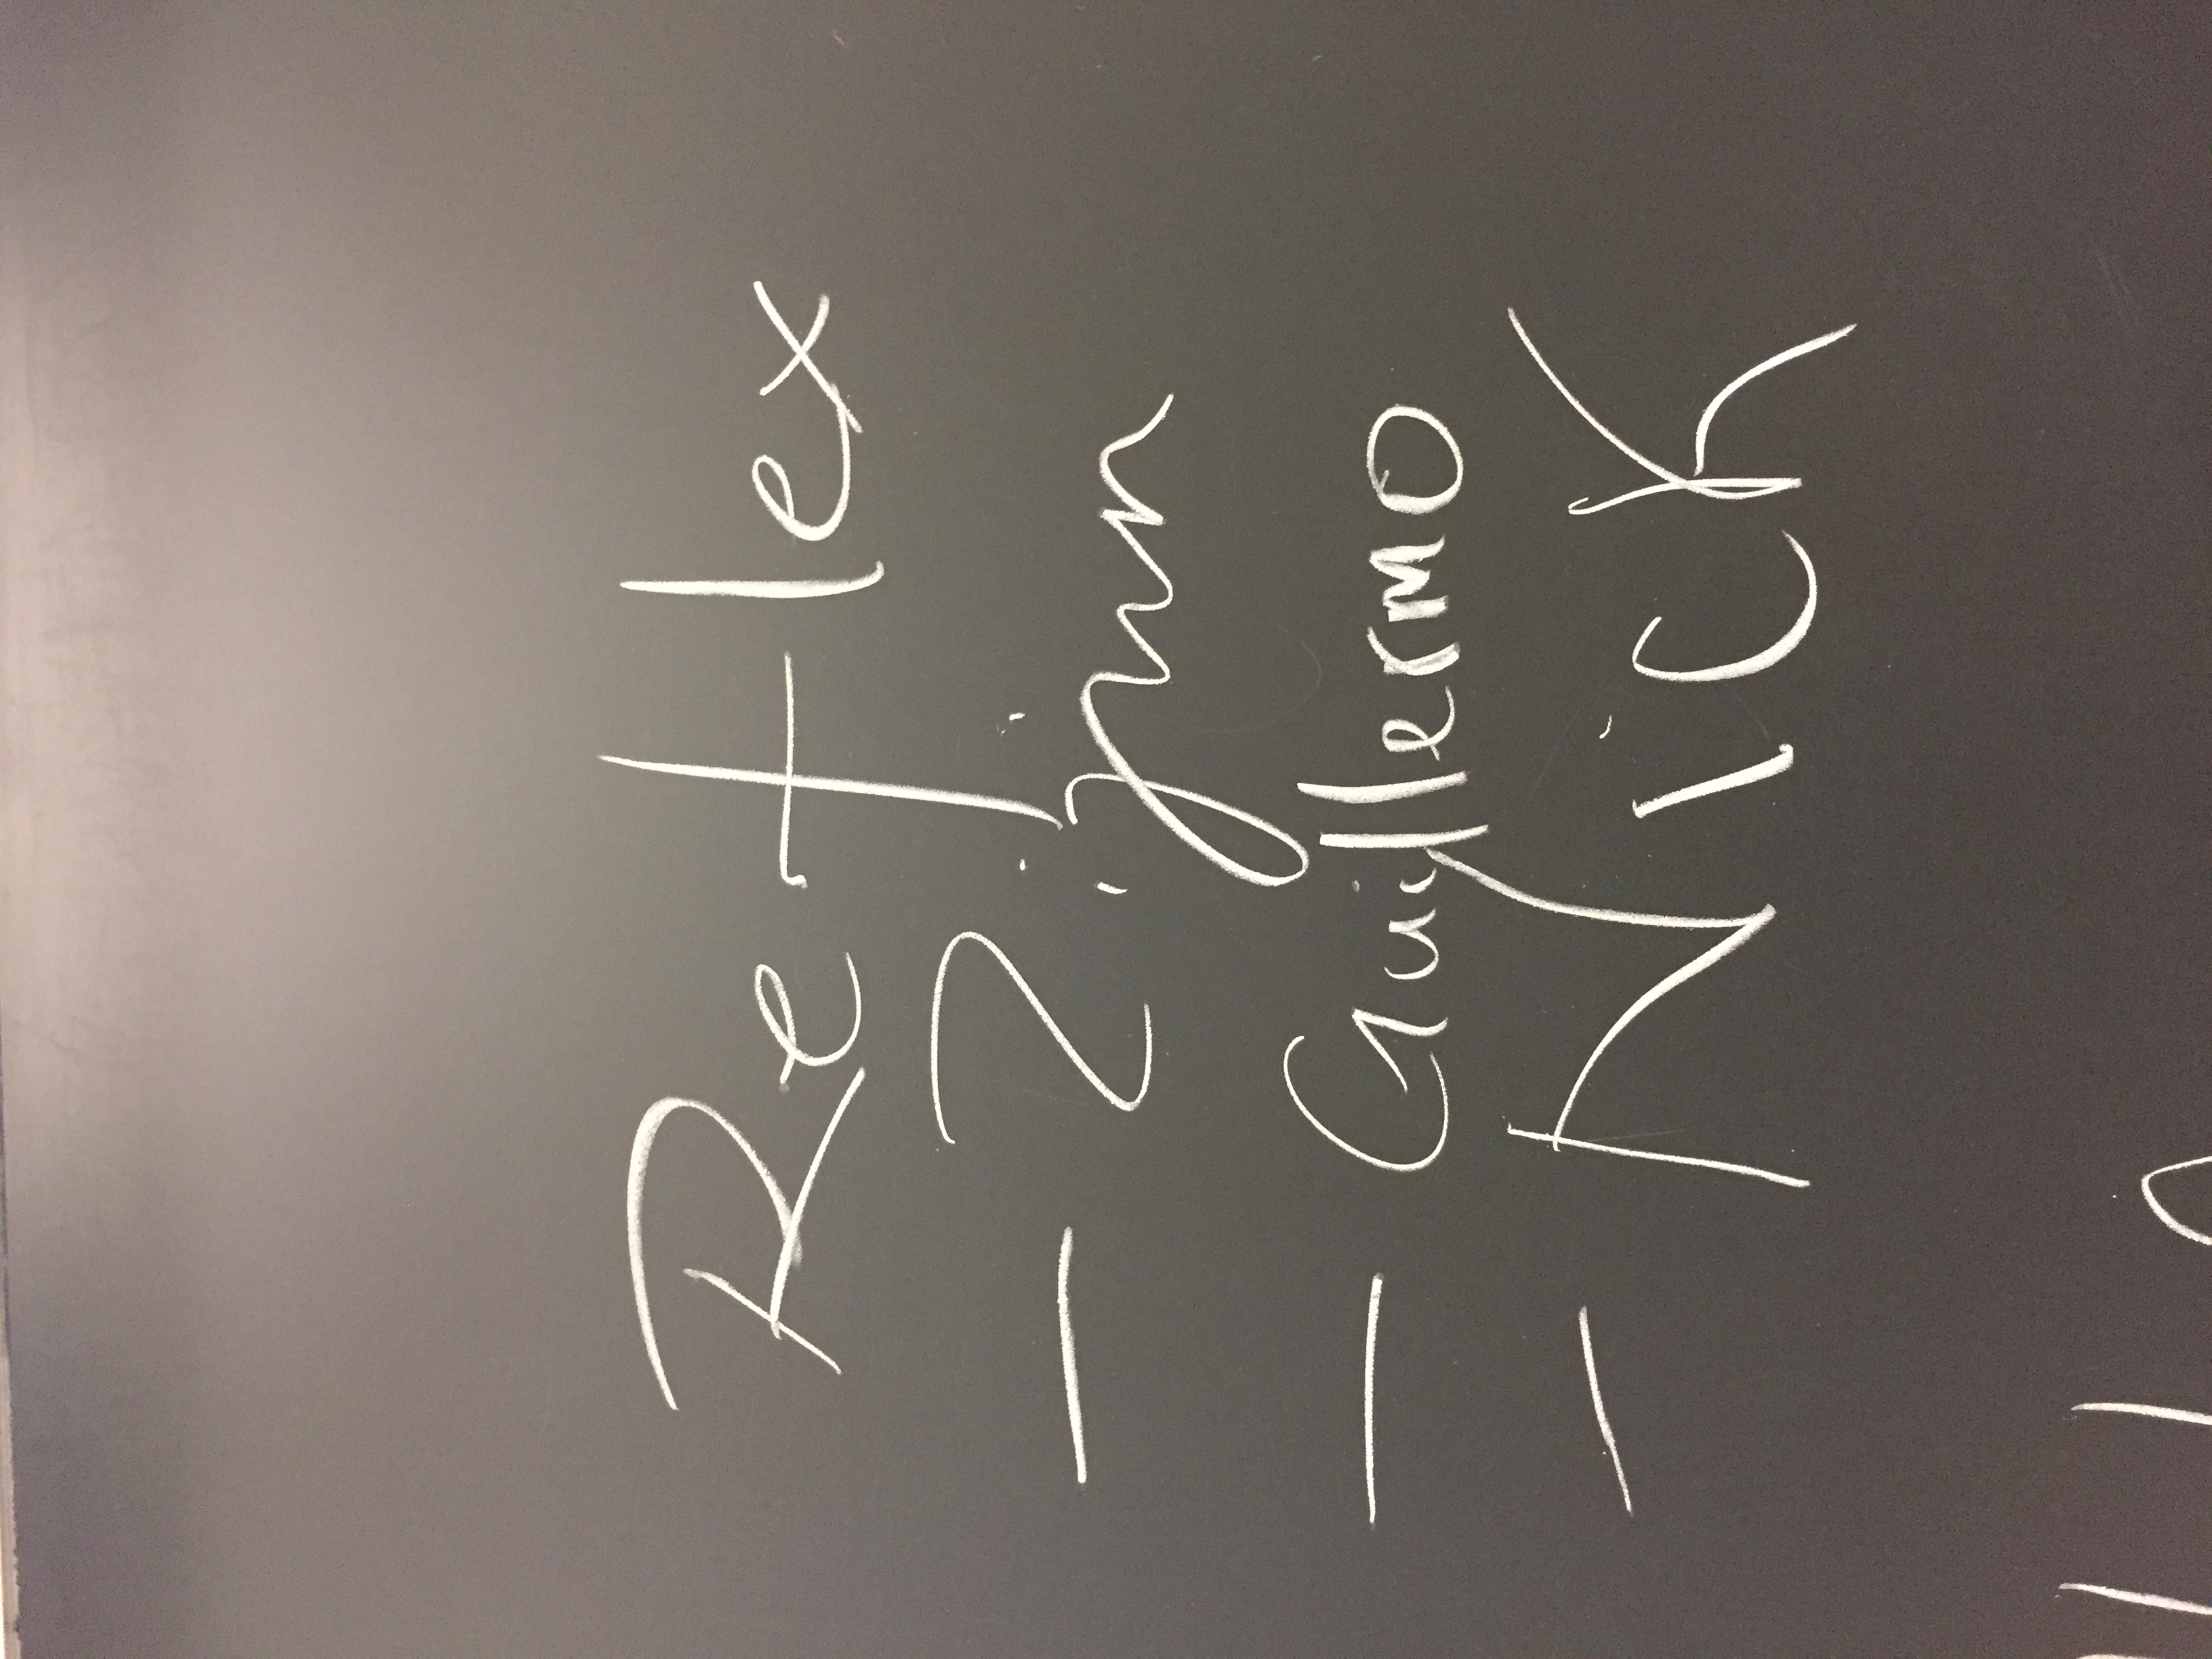 Reflex
- Zijun
- Guillermo
- Nick